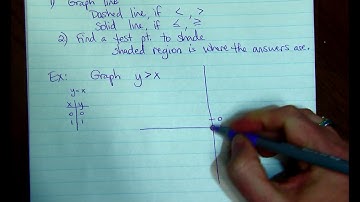 1) Graph line
Dashed line, if <, >
Solid line, if ≤, ≥
2) Find a test pt. to shade
shaded region is where the answers are.
Ex: Graph y > x
y = x
x | y
0 | 0
1 | 1